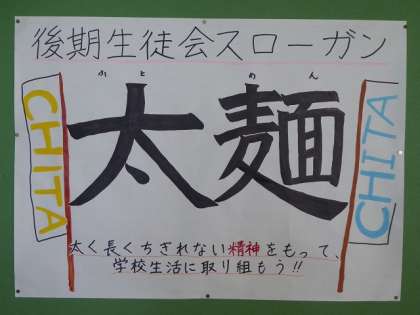 後期生徒会スローガン
ふと めん
太麺
CHITA
CHITA
太く長くちぎれない精神をもって、
学校生活に取り組もう!!